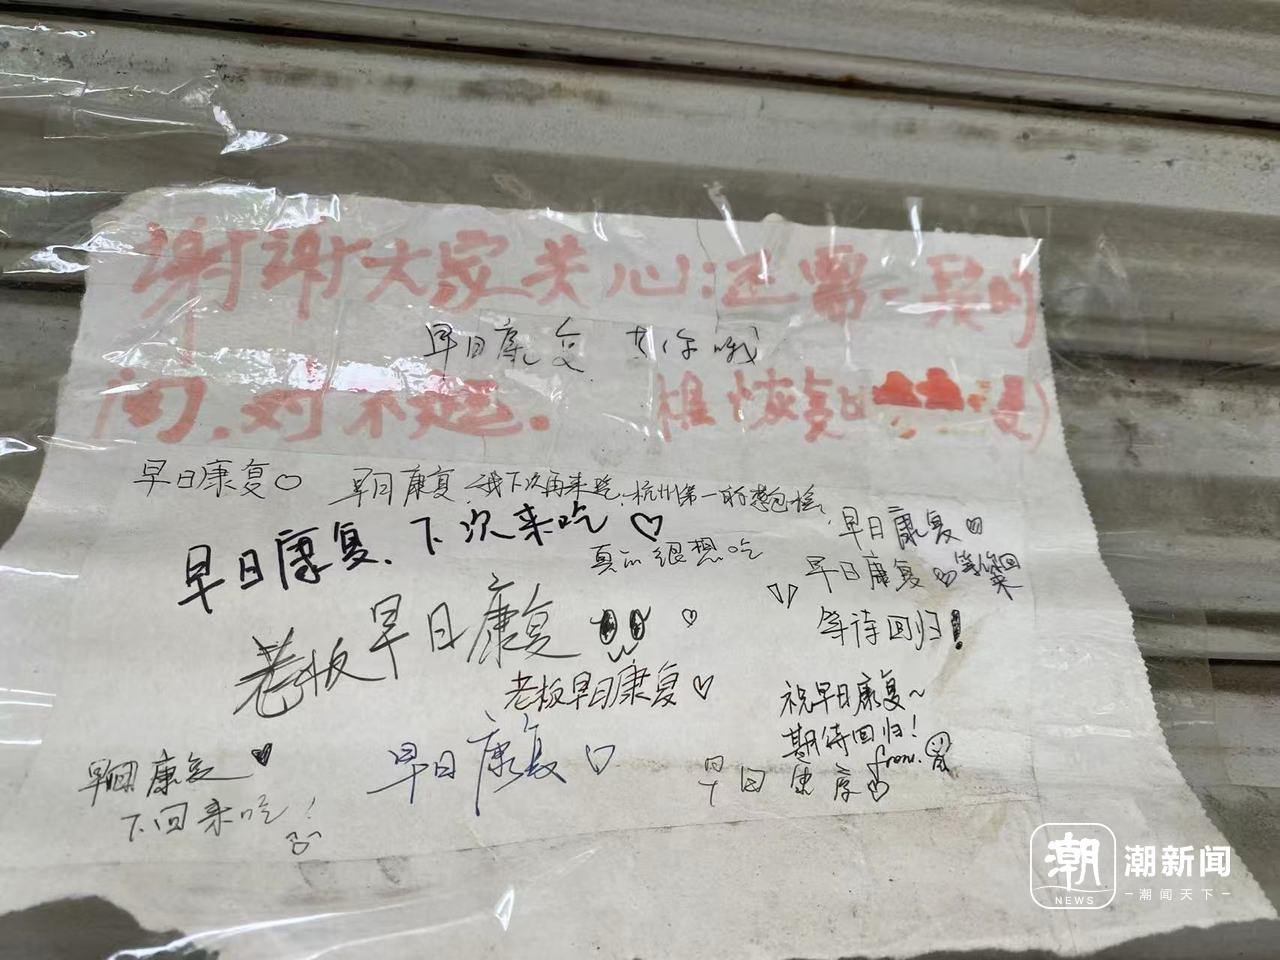 谢谢大家关心:还需一段时
早日康复 等你哦
间.对不起.
早日康复♡
早日康复 我下次再来吃、杭州第一的葱包烩
早日康复、下次来吃♡
真的很想吃
早日康复♡
早日康复♡等你回来
等待回归!
老板早日康复
老板早日康复♡
祝早日康复~
期待回归!
from.
早日康复♡
早日康复
下回来吃!
早日康复♡
潮
NEWS
潮新闻
潮闻天下